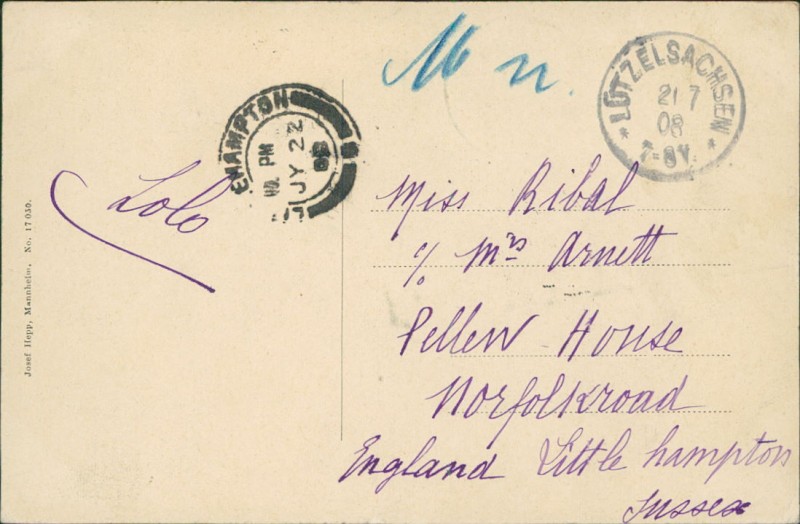 M n.
LÜTZELSACHSEN
21 7
08
7-8V.
EHAMPTON
PM
JY 22
08
Lolo
Miss Ribal
% Mrs Arnett
Pellew House
Norfolkroad
England Little hampton
Sussex
Josef Hepp, Mannheim, No. 17030.